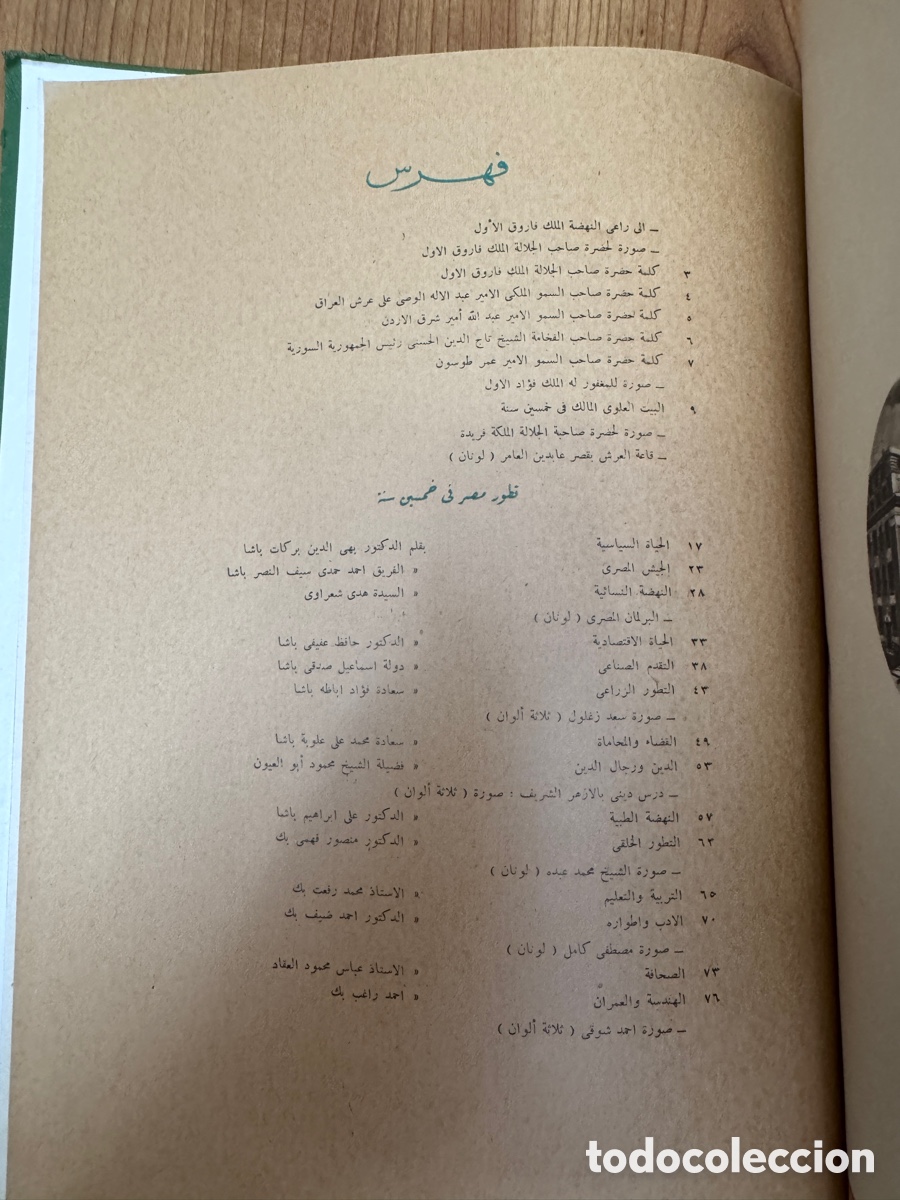 فهرس
ـ الى راعى النهضة الملك فاروق الأول
ـ صورة لحضرة صاحب الجلالة الملك فاروق الاول
٣ كلمة حضرة صاحب الجلالة الملك فاروق الاول
٤ كلمة حضرة صاحب السمو الملكى الامير عبد الاله الوصى على عرش العراق
٥ كلمة لحضرة صاحب السمو الامير عبد الله أمير شرق الاردن
٦ كلمة حضرة صاحب الفخامة الشيخ تاج الدين الحسنى رئيس الجمهورية السورية
٧ كلمة حضرة صاحب السمو الامير عمر طوسون
ـ صورة للمغفور له الملك فؤاد الاول
٩ البيت العلوى المالك فى خمسين سنة
ـ صورة لحضرة صاحبة الجلالة الملكة فريدة
ـ قاعة العرش بقصر عابدين العامر ( لونان )
تطور مصر فى خمسين سنة
١٧ الحياة السياسية بقلم الدكتور بهى الدين بركات باشا
٢٣ الجيش المصرى « الفريق احمد حمدى سيف النصر باشا
٢٨ النهضة النسائية « السيدة هدى شعراوى
ـ البرلمان المصرى ( لونان )
٣٣ الحياة الاقتصادية « الدكتور حافظ عفيفى باشا
٣٨ التقدم الصناعى « دولة اسماعيل صدقى باشا
٤٣ التطور الزراعى « سعادة فؤاد اباظه باشا
ـ صورة سعد زغلول ( ثلاثة ألوان )
٤٩ القضاء والمحاماة « سعادة محمد على علوبة باشا
٥٣ الدين ورجال الدين « فضيلة الشيخ محمود أبو العيون
ـ درس دينى بالازهر الشريف : صورة ( ثلاثة ألوان )
٥٧ النهضة الطبية « الدكتور على ابراهيم باشا
٦٢ التطور الخلقى « الدكتور منصور فهمى بك
ـ صورة الشيخ محمد عبده ( لونان )
٦٥ التربية والتعليم « الاستاذ محمد رفعت بك
٧٠ الادب واطواره « الدكتور احمد ضيف بك
ـ صورة مصطفى كامل ( لونان )
٧٣ الصحافة « الاستاذ عباس محمود العقاد
٧٦ الهندسة والعمران « احمد راغب بك
ـ صورة احمد شوقى ( ثلاثة ألوان )
todocoleccion